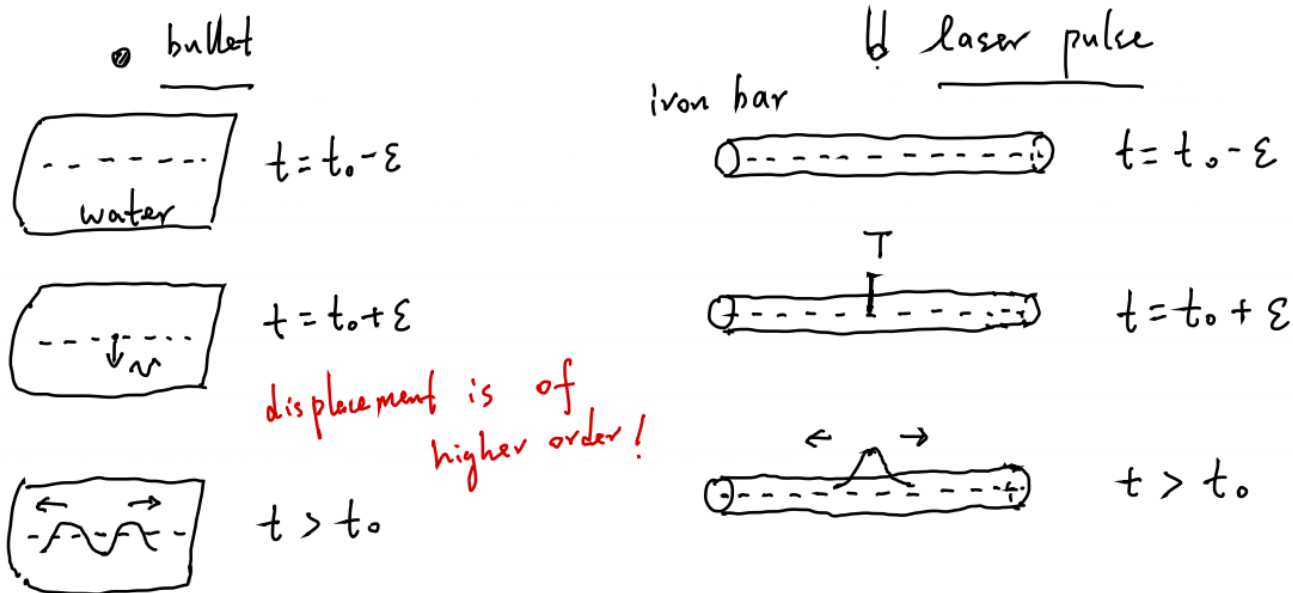 bullet
water
t = t₀ - ε
v
t = t₀ + ε
displacement is of
higher order!
t > t₀
laser pulse
iron bar
t = t₀ - ε
T
t = t₀ + ε
t > t₀